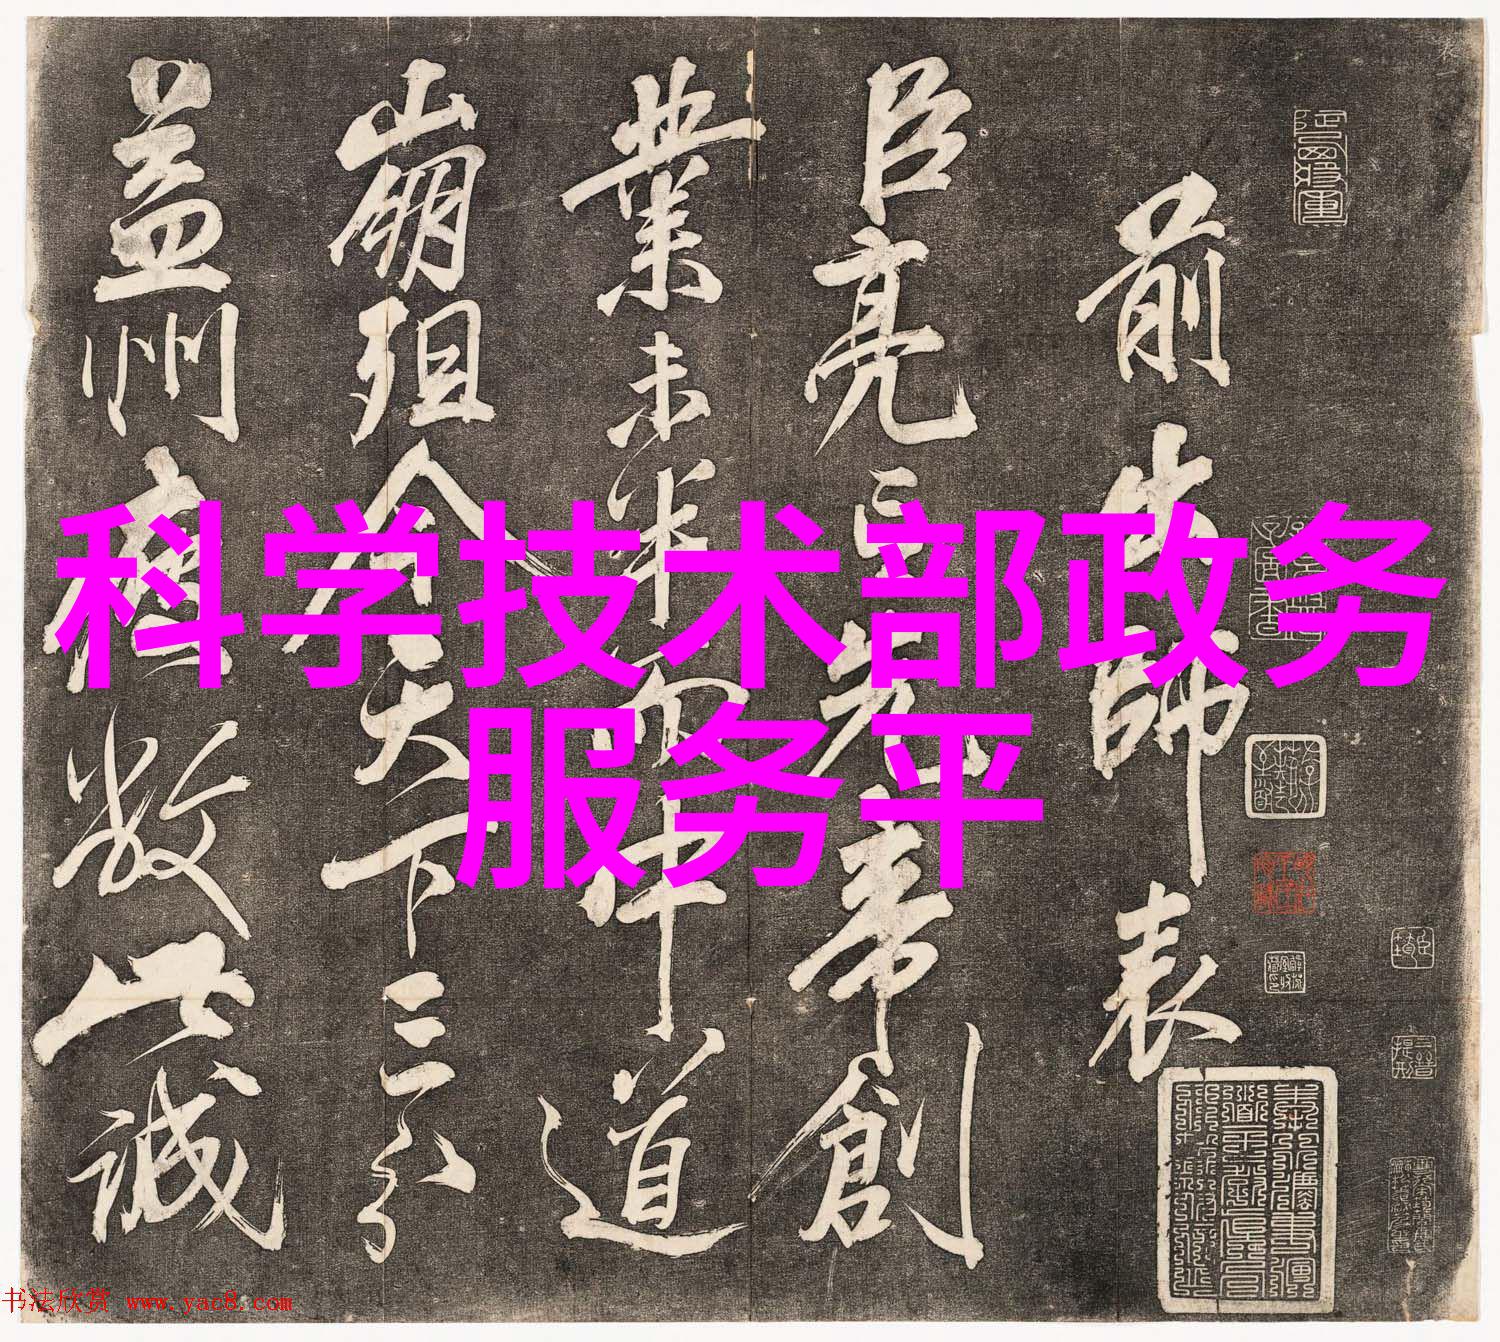 前出師表
臣亮言先帝創
業未半而中道
崩殂今天下三分
益州疲敝此誠
科学技术部政务
服务平
书法欣赏 www.yac8.com